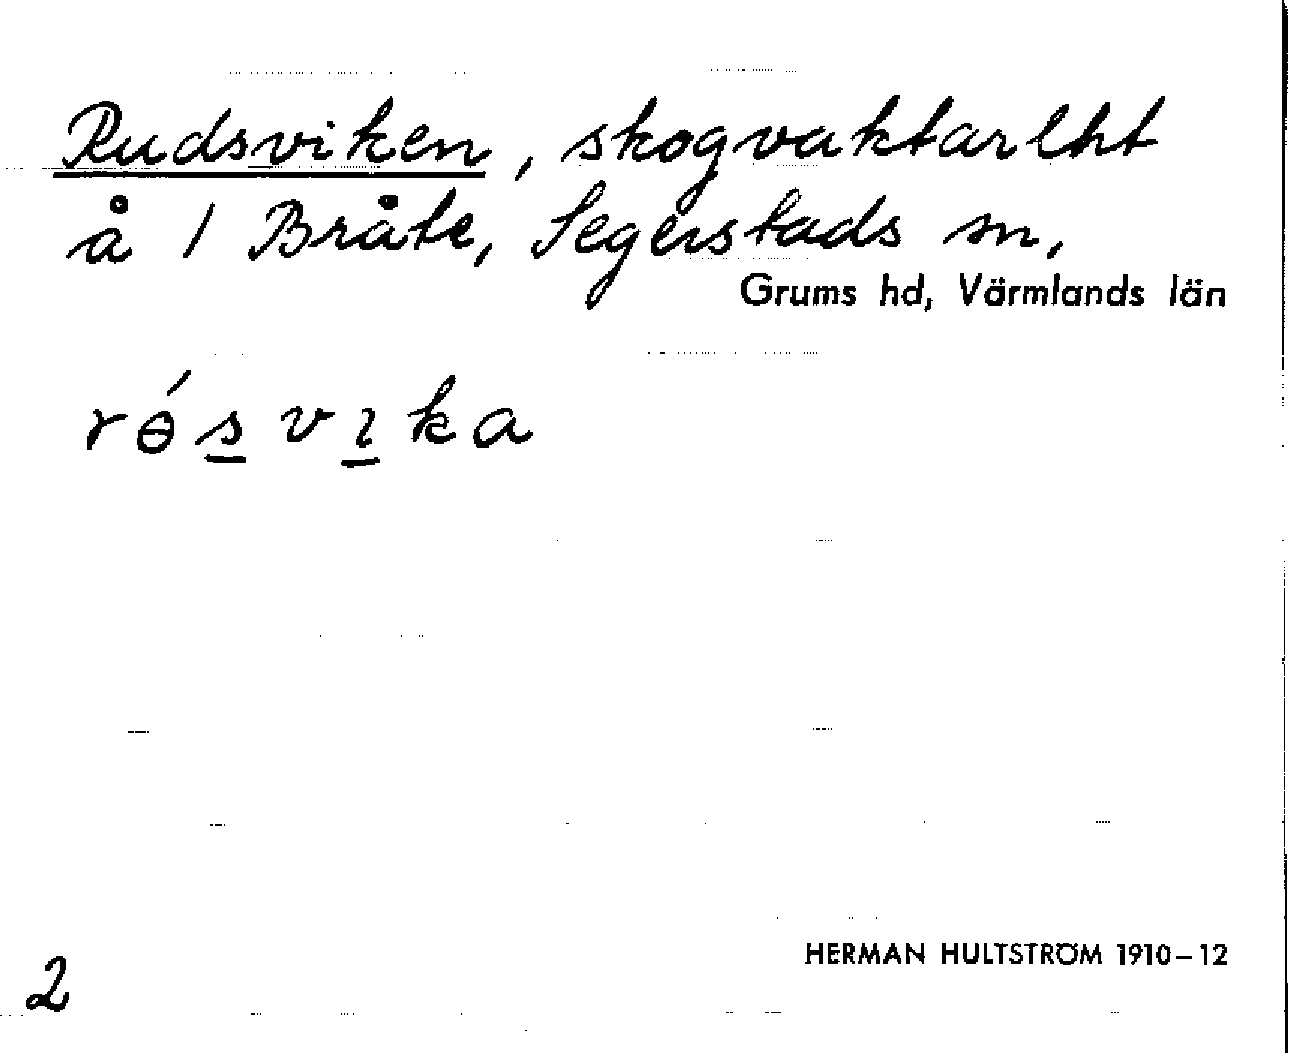 Rudsviken, skogvaktarlht
å 1 Bråte, Segerstads sn,
Grums hd, Värmlands län
rɵ́s̲vı̲ka
HERMAN HULTSTRÖM 1910–12
2